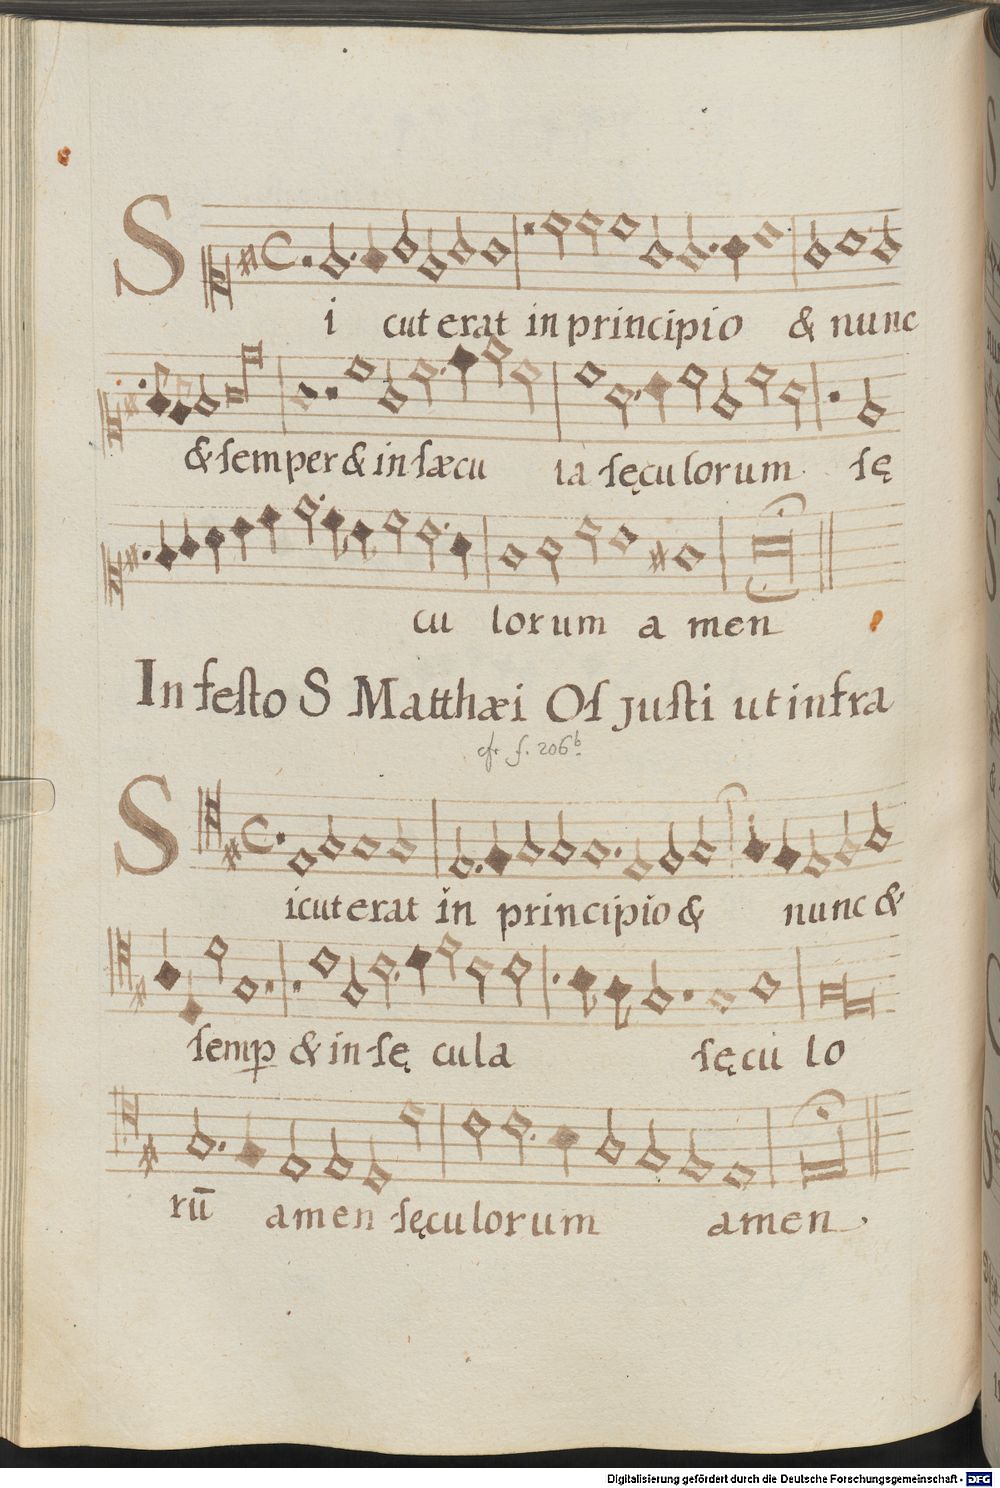 S i cut erat in principio & nunc
& semper & in sæcu la sęculorum sę
cu lorum a men
In festo S Matthæi Os justi ut infra
cfr f. 206b
S icut erat in principio & nunc &
semp & in sę cula sęcu lo
rū amen sęculorum amen
Digitalisierung gefördert durch die Deutsche Forschungsgemeinschaft - DFG